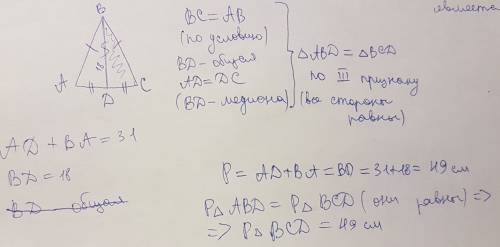 B
A
D
C
18
BC = AB
(по условию)
BD - общая
AD = DC
(BD - медиона)
△ABD = △BCD
по III признаку
(все стороны
равны)
AD + BA = 31
BD = 18
BD общая
P = AD + BA = BD = 31 + 18 = 49 см
P△ ABD = P△ BCD (они равны) =>
=> P△ BCD = 49 см